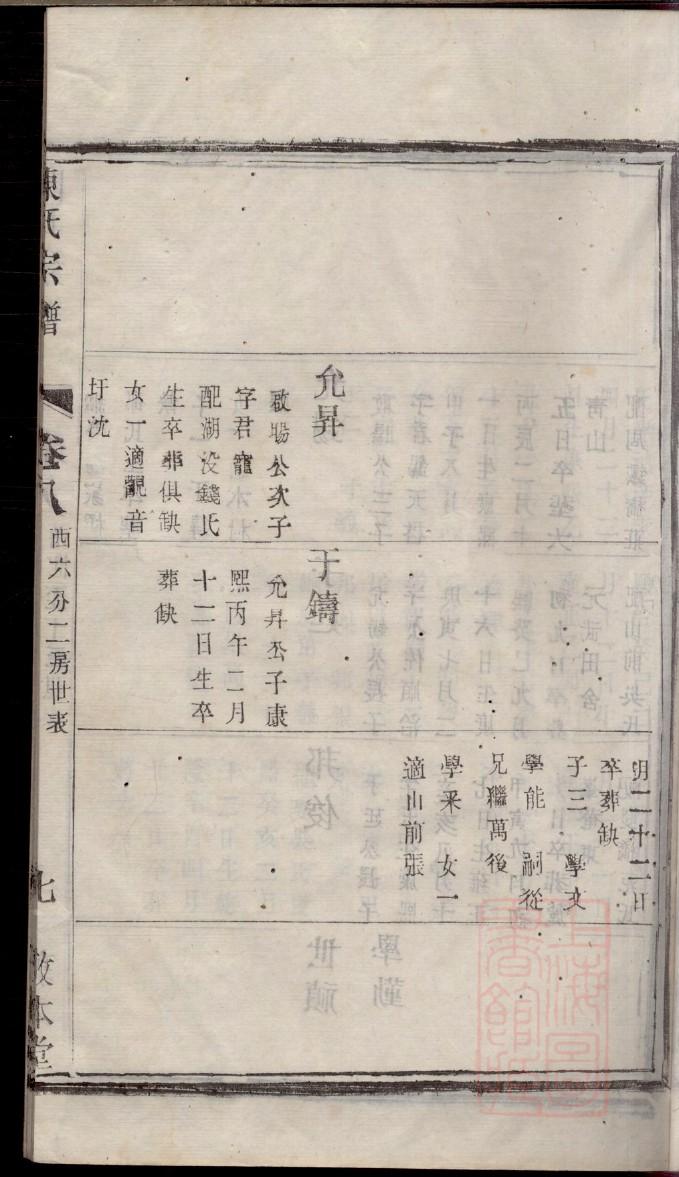 允昇
啟暘公次子
字君寵
配湖沒錢氏
生卒葬俱缺
女一適觀音
圩沈
于鑄
允昇公子康
熙丙午二月
十二日生卒
葬缺
月二十二日
卒葬缺
子三　學文
學能　嗣從
兄繼萬後
學釆　女一
適山前張
陳氏宗譜
卷八
西六分二房世表
七
敦本堂